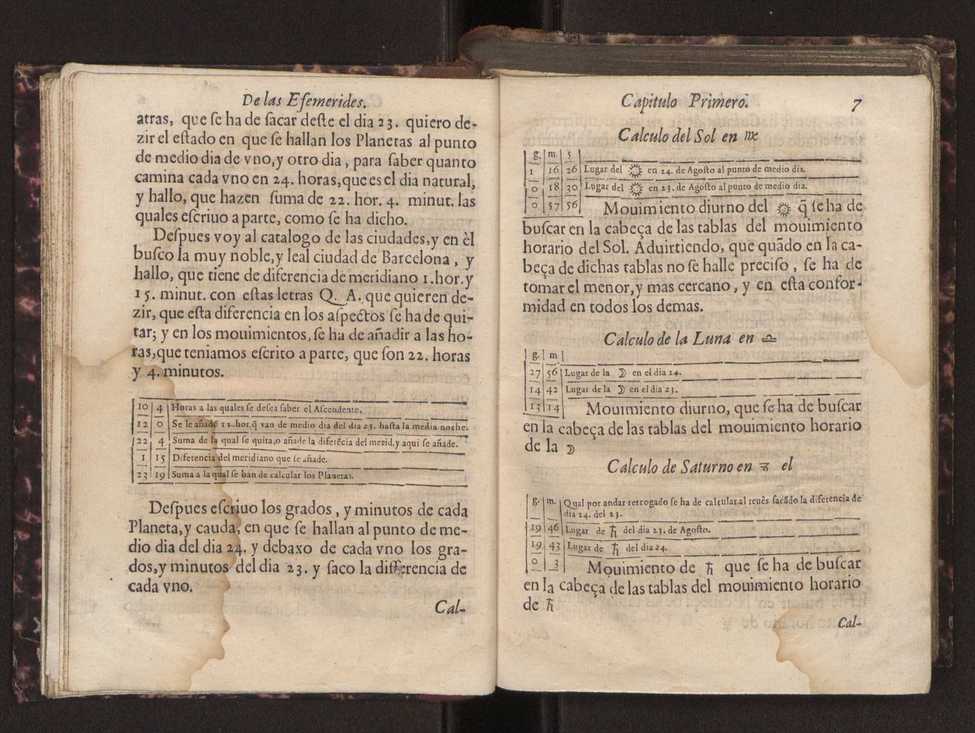 De las Efemerides.
atras, que se ha de sacar deste el dia 23. quiero de-
zir el estado en que se hallan los Planetas al punto
de medio dia de vno,y otro dia, para saber quanto
camina cada vno en 24. horas,que es el dia natural,
y hallo, que hazen suma de 22. hor. 4. minut. las
quales escriuo a parte, como se ha dicho.
Despues voy al catalogo de las ciudades,y en èl
busco la muy noble,y leal ciudad de Barcelona, y
hallo, que tiene de diferencia de meridiano 1.hor.y
15. minut. con estas letras Q. A. que quieren de-
zir, que esta diferencia en los aspectos se ha de qui-
tar; y en los mouimientos, se ha de añadir a las ho-
ras,que teniamos escrito a parte, que son 22. horas
y 4. minutos.
10 4 Horas a las quales se desea saber el Ascendente.
12 0 Se le añade 12.hor.q̃ van de medio dia del dia 23. hasta la media noche.
22 4 Suma de la qual se quita,o añade la diferẽcia del merid,y aqui se añade.
1 15 Diferencia del meridiano que se añade.
23 19 Suma a la qual se han de calcular los Planetas.
Despues escriuo los grados, y minutos de cada
Planeta,y cauda, en que se hallan al punto de me-
dio dia del dia 24. y debaxo de cada vno los gra-
dos,y minutos del dia 23. y saco la diferencia de
cada vno.
Cal-
Capitulo Primero. 7
Calculo del Sol en ♍
g. m. s.
1 16 26 Lugar del ☼ en 24. de Agosto al punto de medio dia.
0 18 30 Lugar del ☼ en 23. de Agosto al punto de medio dia.
0 57 56 Mouimiento diurno del ☼ q̃ se ha de
buscar en la cabeça de las tablas del mouimiento
horario del Sol. Aduirtiendo, que quãdo en la ca-
beça de dichas tablas no se halle preciso, se ha de
tomar el menor,y mas cercano, y en esta confor-
midad en todos los demas.
Calculo de la Luna en ♎
g. m
27 56 Lugar de la ☽ en el dia 24.
14 42 Lugar de la ☽ en el dia 23.
13 14 Mouimiento diurno, que se ha de buscar
en la cabeça de las tablas del mouimiento horario
de la ☽
Calculo de Saturno en ♉ el
g. m. Qual por andar retrogado se ha de calcular al reuès sacãdo la diferencia de
dia 24. del 23.
19 46 Lugar de ♄ del dia 23. de Agosto.
19 43 Lugar de ♄ del dia 24.
0 3 Mouimiento de ♄ que se ha de buscar
en la cabeça de las tablas del mouimiento horario
de ♄
Cal-